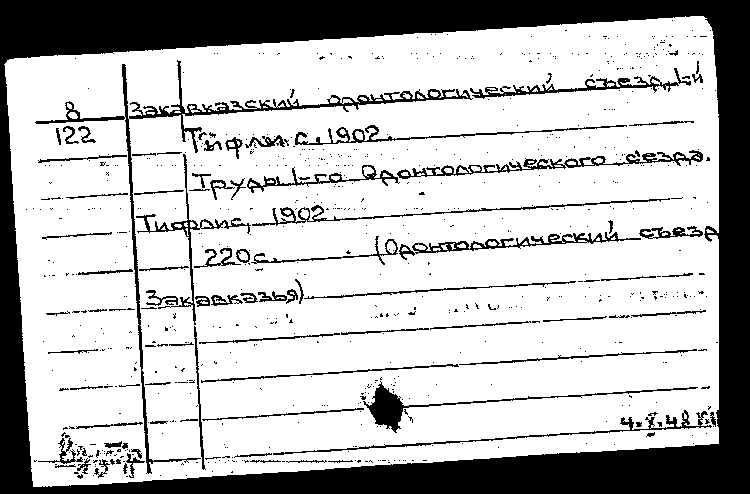 8
122
Закавказский одонтологический съезд, I-й
Тифлис. 1902.
Труды I-го Одонтологического с'езда.
Тифлис, 1902.
220с. (Одонтологический съезд
Закавказья)
4.X.48